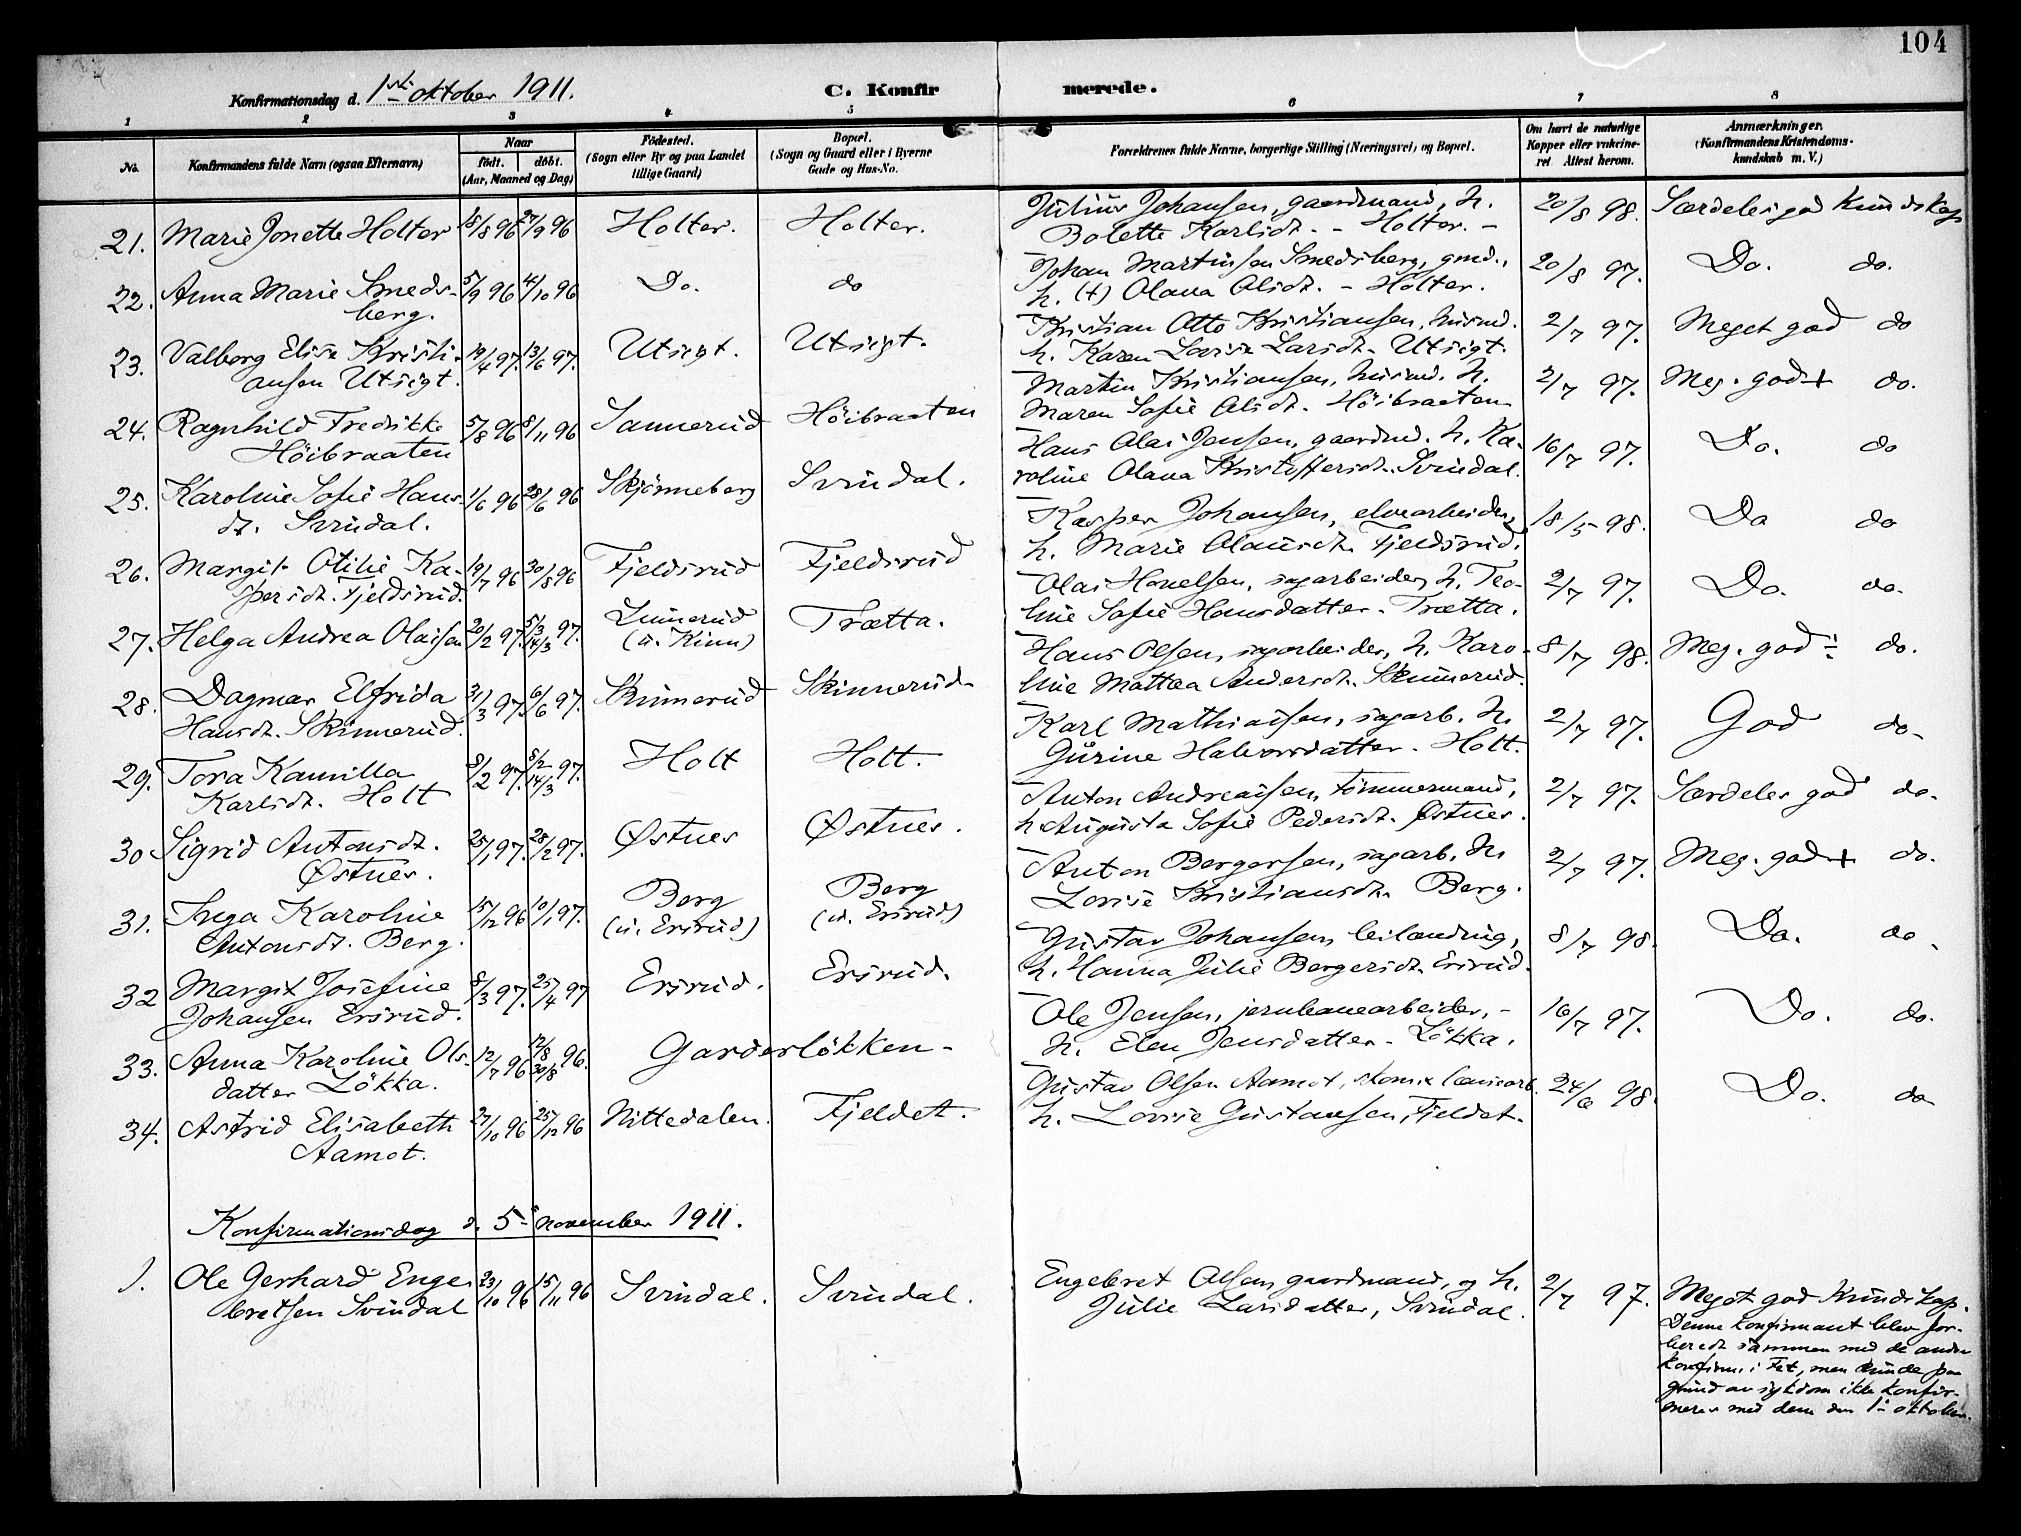 104
Konfirmationsdag d. 1ste oktober 1911.
C. Konfirmerede.
1 2 3 4 5 6 7 8
No.
Konfirmandens fulde Navn (ogsaa Efternavn)
Naar
født. døbt.
(Aar, Maaned og Dag)
Fødested.
(Sogn eller By og paa Landet
tillige Gaard)
Bopæl.
(Sogn og Gaard eller i Byerne
Gade og Hus-No.
Forældrenes fulde Navne, borgerlige Stilling (Næringsvei) og Bopæl.
Om havt de naturlige
Kopper eller vakcine-
ret Attest herom.
Anmærkninger.
(Konfirmandens Kristendoms-
kundskab m. V.)
21. Marie Jonette Holter 18/8 96 27/9 96 Holter. Holter. Julius Johansen, gaardmand, h. 20/8 98. Særdeles god Kundskap
Bolette Karlsdt. - Holter. -
22. Anna Marie Smeds- 5/9 96 4/10 96 Do. do Johan Martinsen Smedsberg, gmd., 20/8 97. Do. do.
berg. h. (+) Olava Olsdt. - Holter.
23. Valborg Elise Kristi- 19/4 97. 13/6 97. Utsigt. Utsigt. Kristian Otto Kristiansen, husmd. 2/7 97. Meget god do
ansen Utsigt. h. Karen Lovise Larsdt. Utsigt.
24. Ragnhild Fredrikke 5/8 96 8/11 96 Sannerud Høibraaten Martin Kristiansen, husmd. h. 2/7 97. Meg. god + do.
Høibraaten Maren Sofie Olsdt. Høibraaten
25. Karoline Sofie Hans- 1/6 96 28/6 96 Skjønneberg Svindal. Hans Olai Jensen, gaardmd. h. Ka- 16/7 97. Do. do
dt. Svindal. roline Olava Kristoffersdt. Svindal.
26. Margit Otilie Ka- 19/7 96 30/8 96 Fjeldsrud Fjeldsrud Kasper Johansen, elvearbeider, 18/5 98. Do do
spersdt. Fjeldsrud. h. Marie Olausdt. Fjeldsrud.
27. Helga Andrea Olaisen 20/2 97. 5/3 14/3 97. Linnerud Trætta. Olai Hanelsen, sagarbeider, h. Teo- 2/7 97. Do. do.
(u. Kinn) line Sofie Hansdatter - Trætta.
28. Dagmar Elfrida 31/3 97. 6/6 97. Skinnerud Skinnerud Hans Olsen, sagarbeider, h. Karo- 8/7 98. Meg. god ÷ do.
Hansdt. Skinnerud. line Mattea Andersdt. Skinnerud.
29. Tora Kamilla 8/2 97. 8/2 14/3 97. Holt Holt. Karl Mathiasen, sagarb. h. 2/7 97. God do
Karlsdt. Holt Gurine Halvorsdatter. Holt.
30 Sigrid Antonsdt. 25/1 97. 28/2 97. Østnes Østnes. Anton Andreasen, tømmermand, 2/7 97. Særdeles god do.
Østnes. h Augusta Sofie Pedersdt. Østnes.
31. Inga Karoline 15/12 96 10/1 97. Berg Berg Anton Bergersen, sagarb. h. 2/7 97. Meg. god + do.
Antonsdt. Berg. (u. Ersrud) (u. Ersrud) Lovise Kristiansdt. Berg.
32 Margit Josefine 8/3 97. 25/4 97 Ersrud. Ersrud. Gustav Johansen, leilænding, 8/7 98. Do. do
Johansen Ersrud. h. Hanna Julie Bergersdt. Ersrud.
33. Anna Karoline Ols- 12/7 96 12/8 30/8 96. Garderløkken Ole Jensen, jernbanearbeider, - 16/7 97. Do. do.
datter Løkka. h. Elen Jensdatter - Løkka.
34. Astrid Elisabeth 27/10 96 25/12 96 Nittedalen. Fjeldet. Gustav Olsen Aamot, 24/6 98. Do. do
Aamot. h. Lovise Gustavsen, Fjeldet.
Konfirmationsdag d. 5te november 1911.
1. Ole Gerhard Enge- 23/10 96 15/11 96 Svindal. Svindal. Engebret Olsen, gaardmand, og h. 2/7 97. Meget god Kundskap.
bretsen Svindal Julie Larsdatter, Svindal.
Denne konfirmant blev for-
beredt sammen med de andre
konfirm. i Fet, men kunde paa
grund av sykdom ikke konfir-
meres med dem den 1te oktober.